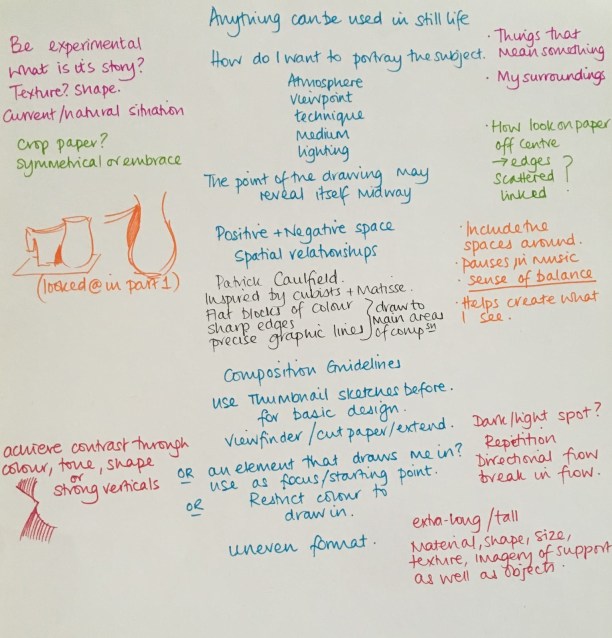 Anything can be used in still life
Be experimental
What is it's story?
Texture? Shape.
Current/natural situation
How do I want to portray the subject.
Atmosphere
viewpoint
technique
Medium
lighting
· Things that
Mean something
· My surroundings
Crop paper?
Symmetrical or embrace
· How look on paper
off centre
→ edges
scattered
linked ?
The point of the drawing may
reveal itself midway
(looked @ in part 1)
Positive + Negative space
Spatial relationships
· Include the
spaces around.
· pauses in music
· sense of balance
· Helps create what
I see.
Patrick Caulfield.
Inspired by cubists + Matisse.
Flat blocks of colour
sharp edges
precise graphic lines
draw to
main areas
of comp sn
Composition Guidelines
use Thumbnail sketches before.
for basic design.
viewfinder / cut paper / extend.
achieve contrast through
colour, tone, shape
or
strong verticals
OR an element that draws me in?
use as focus/starting point.
OR Restrict colour to
draw in.
uneven format.
Dark/light spot?
Repitition
Directional flow
break in flow.
extra-long / tall
Material, shape, size,
texture, imagery of support
as well as objects.